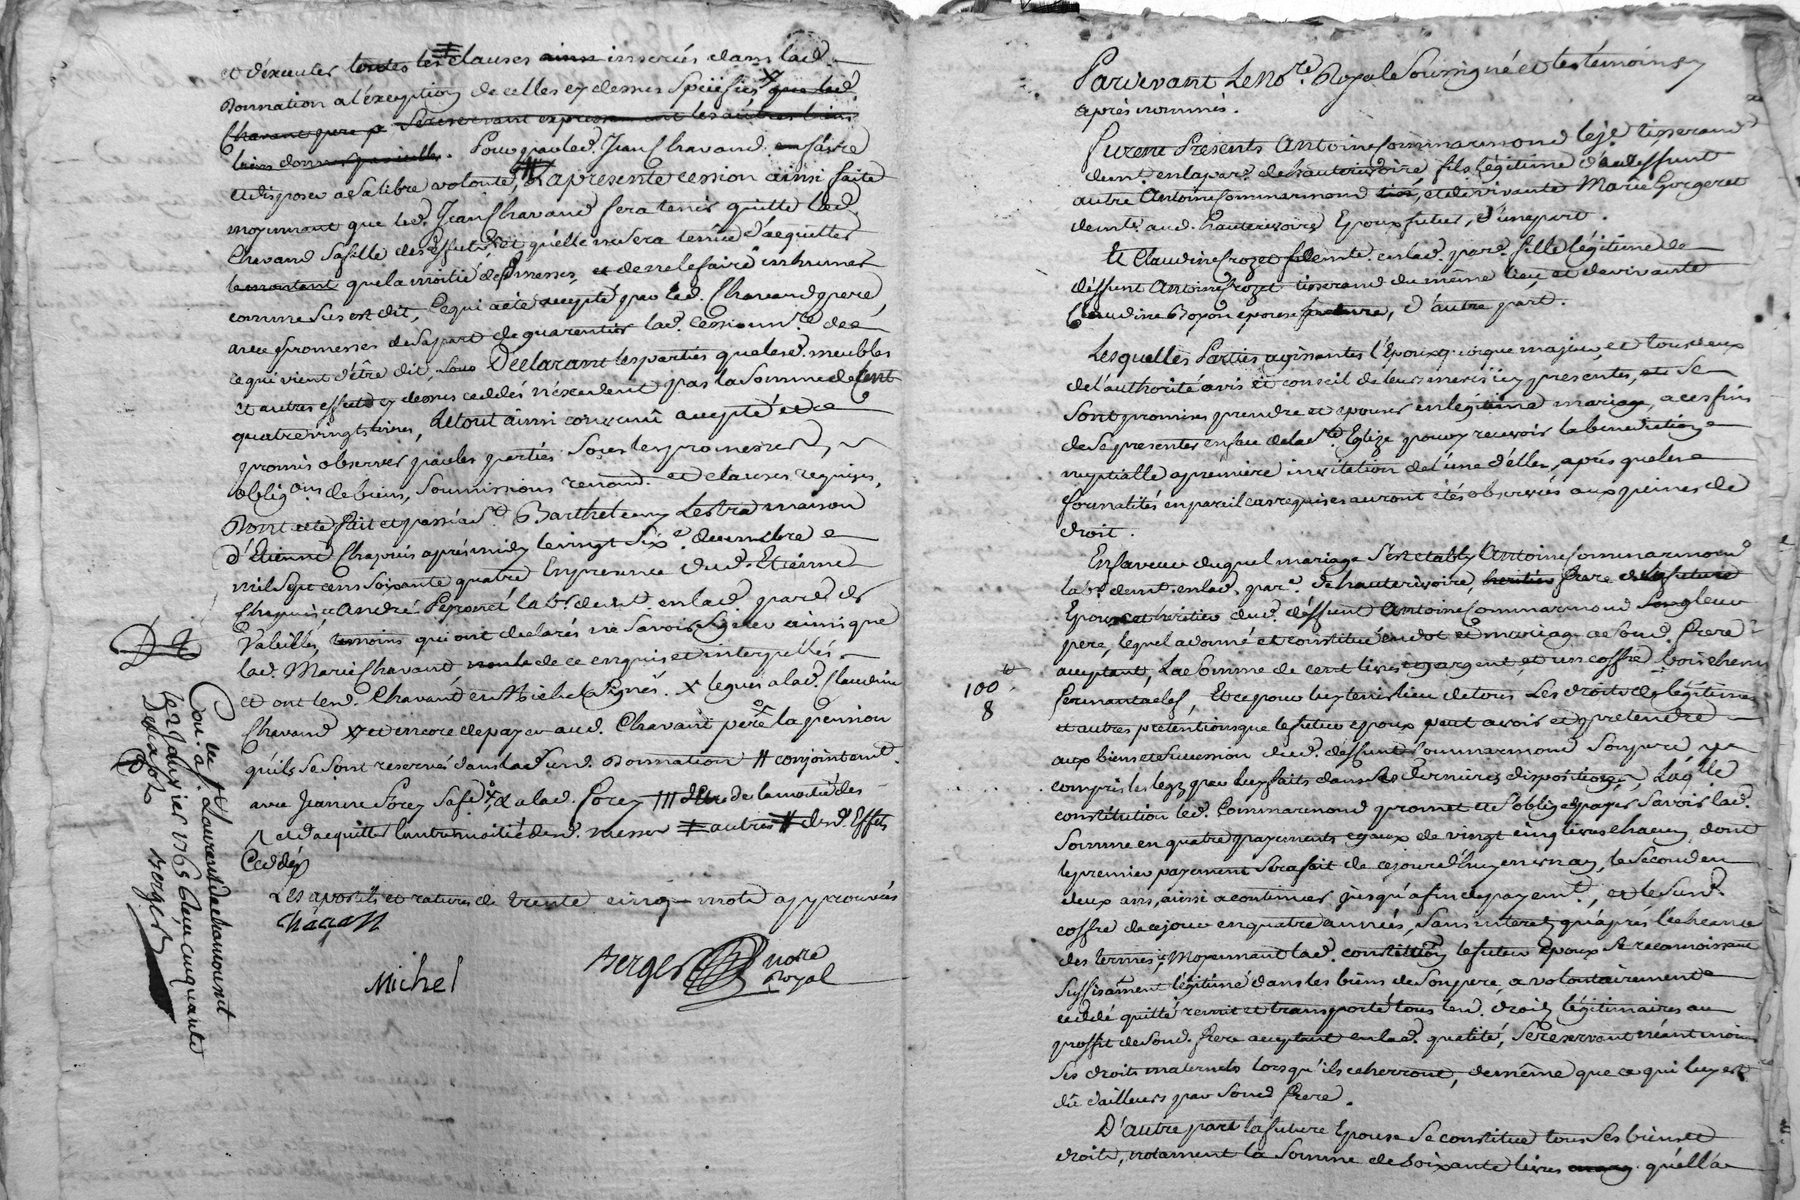 et d'éxecuter toutes les clauses ainsi inserées dans lad.
Donnation a l'éxeption de celles cy dessus Speiifiées que led.
Chavant pere Se reservant expressement les autres biens
biens donnés. Pour par led. Jean Chavand en faire
et disposer a Sa libre volonté, la presente cession ainsi faite
moyennant que led. Jean Chavand Sera tenir quitte lad.
Chavand Sa fille desd. et qu'elle ne sera tenüe d'acquitter
le montant que la moitié desd. messes, et de ne le faire inhumer
comme Sus est dit, Ce qui a eté accepté par led. Chavand pere,
avec promesses de Sa part de garentir lad. Cession de
ce qui vient d'être dit, Sous Declarant les parties que lesd. meubles
et autres effets cy dessus ceddés n'éxcedent pas la Somme de cent
quatre vingts livres, le tout ainsi convenû accepté et
promis observer par les parties Sous les promesses
oblig.ons de biens, Soumissions renond. et clauses requises,
Dont acte fait et passé a S.t Barthelemy Lestra maison
d'Etienne Chapuis après midy le vingt Six.e decembre
mil Sept cens Soixante quatre En presence dud. Etienne
Chapuis, et André Peyronet lab.r dem.t en lad. par. de
Valeilles, temoins qui ont declarés ne Savoir Signer ainsi que
lad. Marie Chavant de ce enquis et interpellés
et ont led. Chavand et Michel Signés. x legués a lad. Claudine
Chavand x et encore de payer aud. Chavant pere la pension
qu'ils Se Sont reservés dans lad. Susd. Donnation # conjointem.t
avec Jeanne Forey Sa fe. x & a lad. Forey III de la moitié des
et d'acquitter l'autre moitié desd. messes # autres # desd. Effets
Ceddés
Les apostils et ratures de trente cinq mots approuvés
Chavan
Michel
Berger no.re Royal
Con.lé a S.t Laurent de chamousset
le 2 janvier 1765 Reçu cinquante
Deux sols Berger
Pardevant Le No.re Royal Soussigné et les témoins
après nommés.
Furent Presents Antoine Commarmond le j.e tisserand
dem.t en la par. de hauterivoire fils légitime d'a deffunt
autre Antoine Commarmond, et de vivante Marie Gorgeret
dem.te aud. hauterivoire Epoux futur, d'une part.
Et Claudine Crozet dem.te en lad. par. fille légitime de
deffunt Antoine Crozet tisserand du même lieu et de vivante
Claudine Boyon epouse future, d'autre part.
Lesquelles Parties agissantes l'Epoux quoique majeur, et tous deux
de l'authorité avis et conseil de leurs meres icy presentes, et Se
Sont promises prendre et epouser en légitime mariage, a ces fins
de Se presenter en face de la S.te Eglize pour y recevoir la benediction
nuptialle a premiere invitation de l'une d'elles, après que les
formalités en pareil cas requises auront étés observées aux peines de
droit.
En faveur duquel mariage S'est etably Antoine Commarmond
lab.r dem.t en lad. par. de hauterivoire, heritier frere de la future
Epoux et héritier dud. deffunt Antoine Commarmond Son & leur
pere, lequel a donné et constitué en dot et mariage a Sond. frere
acceptant, La Somme de cent livres en argent, et un coffre bois chene
fermant a clef, Et ce pour luy tenir lieu de tous Les droits de légitimes
et autres pretentions que le futur epoux peut avoir et pretendre
aux biens et Succession dud. deffunt Commarmond Son pere y
compris les legs par luy faits dans Ses dernieres dispositions, Laq.lle
constitution led. Commarmond promet et S'oblige payer Savoir lad.
Somme en quatre payements egaux de vingt cinq livres chacun, dont
le premier payement Se fait de ce jourd'huy en un an, le Second en
deux ans, ainsi a continuer jusqu'a fin de payem.t, et le Susd.
coffre de ce jour en quatre années, Sans interets qu'après l'écheance
des termes; Moyennant lad. constitution le futur epoux Se reconnoissant
Suffisament légitimé dans les biens de Son pere, a volontairement
ceddé quitté remit et transporté tous lesd. droits légitimaires au
proffit de Sond. frere acceptant en lad. qualité, Se reservant néantmoins
Ses droits maternels lorsqu'ils echerront, de même que ce qui luy est
dû d'ailleurs par Sond. frere.
D'autre part la future Epouse Se constitue tous Ses biens et
droits, notament la Somme de Soixante livres qu'elle a
100 tt
8